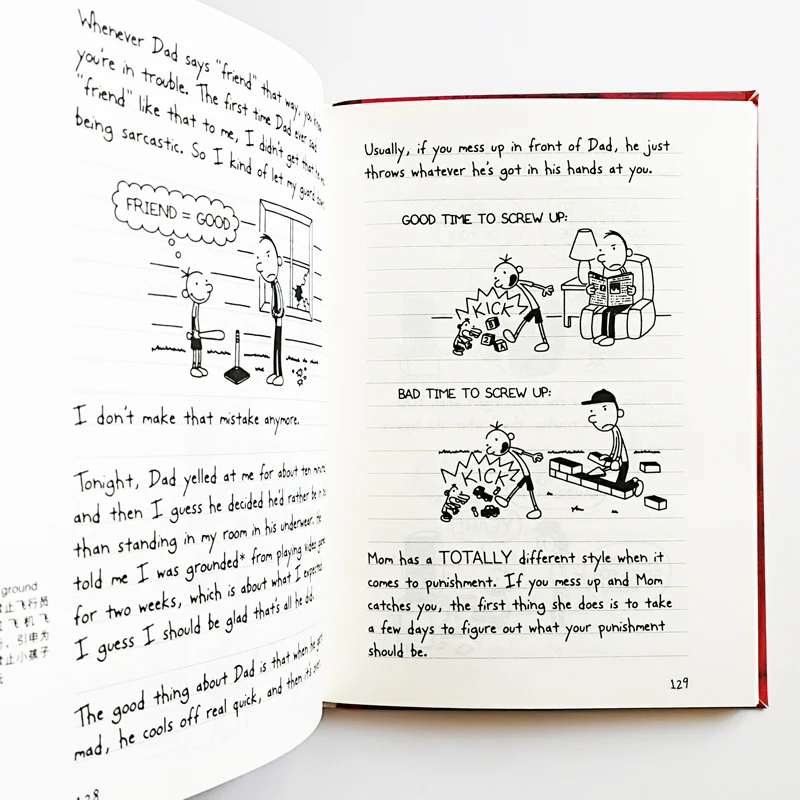 Whenever Dad says "friend" that way, you
you're in trouble. The first time Dad ever said
"friend" like that to me, I didn't get that
being sarcastic. So I kind of let my guard down.
FRIEND = GOOD
I don't make that mistake anymore.
Tonight, Dad yelled at me for about ten
and then I guess he decided he'd rather be in
than standing in my room in his underwear. He
told me I was grounded* from playing video
for two weeks, which is about what I expected.
I guess I should be glad that's all he did.
The good thing about Dad is that when he gets
mad, he cools off real quick, and then it's
128
ground
止飞行员
飞机飞
引申为
止小孩子
Usually, if you mess up in front of Dad, he just
throws whatever he's got in his hands at you.
GOOD TIME TO SCREW UP:
KICK
BAD TIME TO SCREW UP:
KICK
Mom has a TOTALLY different style when it
comes to punishment. If you mess up and Mom
catches you, the first thing she does is to take
a few days to figure out what your punishment
should be.
129